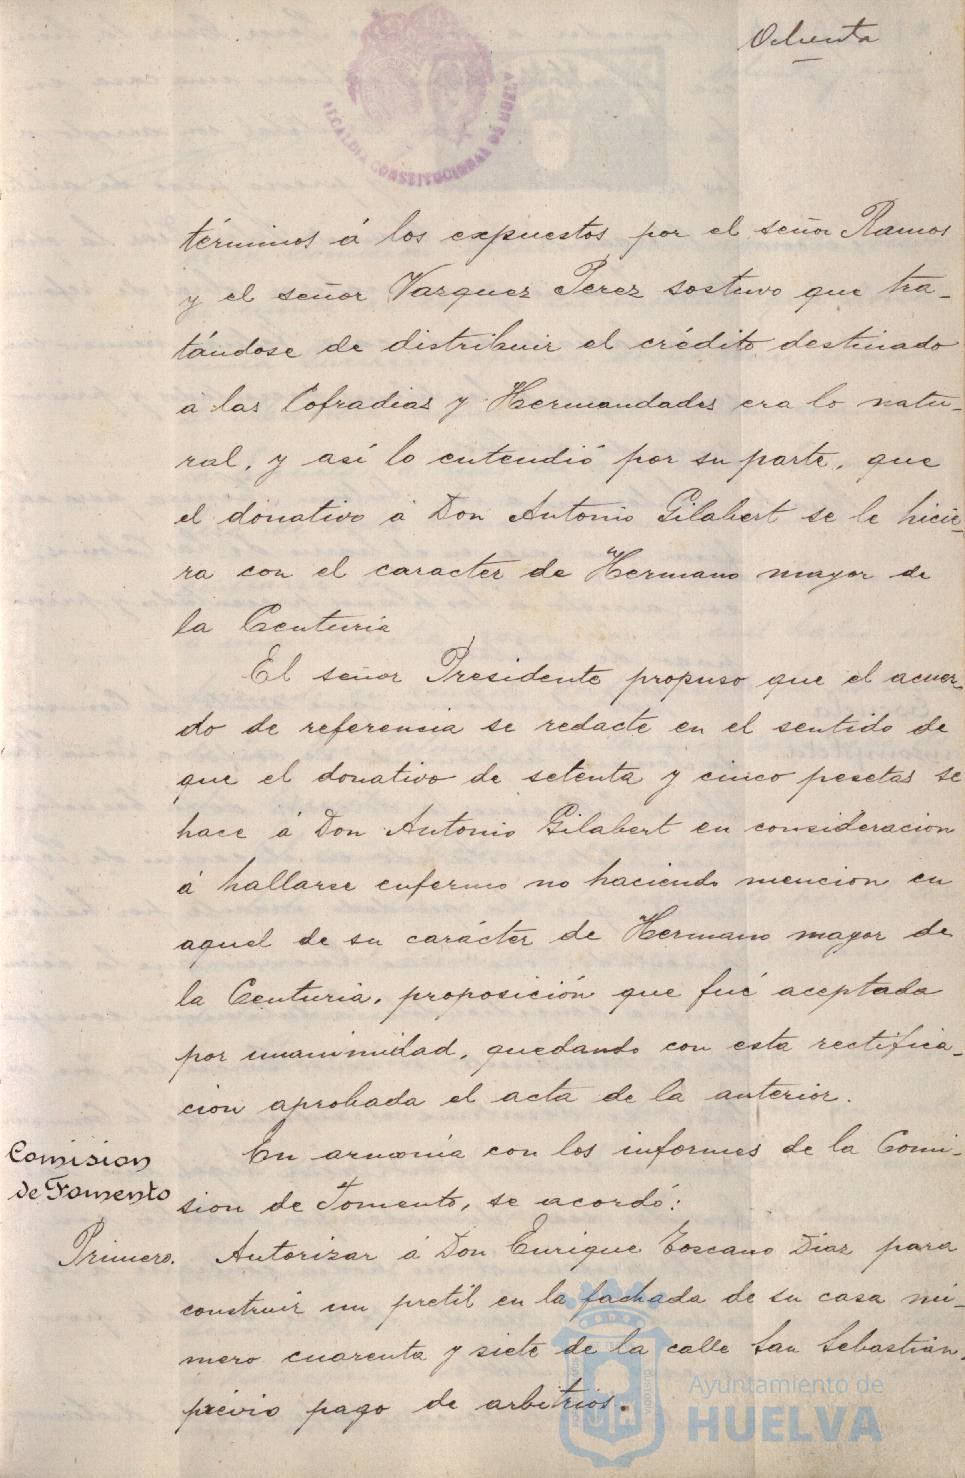 Ochenta
ALCALDIA CONSTITUCIONAL DE HUELVA
términos á los expuestos por el señor Ramos
y el señor Vazquez Perez sostuvo que tra-
tándose de distribuir el crédito destinado
á las Cofradias y Hermandades era lo natu-
ral, y así lo entendió por su parte, que
el donativo á Don Antonio Gilabert se le hicie-
ra con el caracter de Hermano mayor de
la Centuria
El señor Presidente propuso que el acuer-
do de referencia se redacte en el sentido de
que el donativo de setenta y cinco pesetas se
hace á Don Antonio Gilabert en consideracion
á hallarse enfermo no haciendo mencion en
aquel de su carácter de Hermano mayor de
la Centuria, proposición que fué aceptada
por unanimidad, quedando con esta rectifica-
cion aprobada el acta de la anterior.
Comision
de Fomento
En armonía con los informes de la Comi-
sion de Fomento, se acordó:
Primero. Autorizar á Don Enrique Toscano Diaz para
construir un pretil en la fachada de su casa nú-
mero cuarenta y siete de la calle San Sebastián,
prévio pago de arbitrios.
Ayuntamiento de
HUELVA